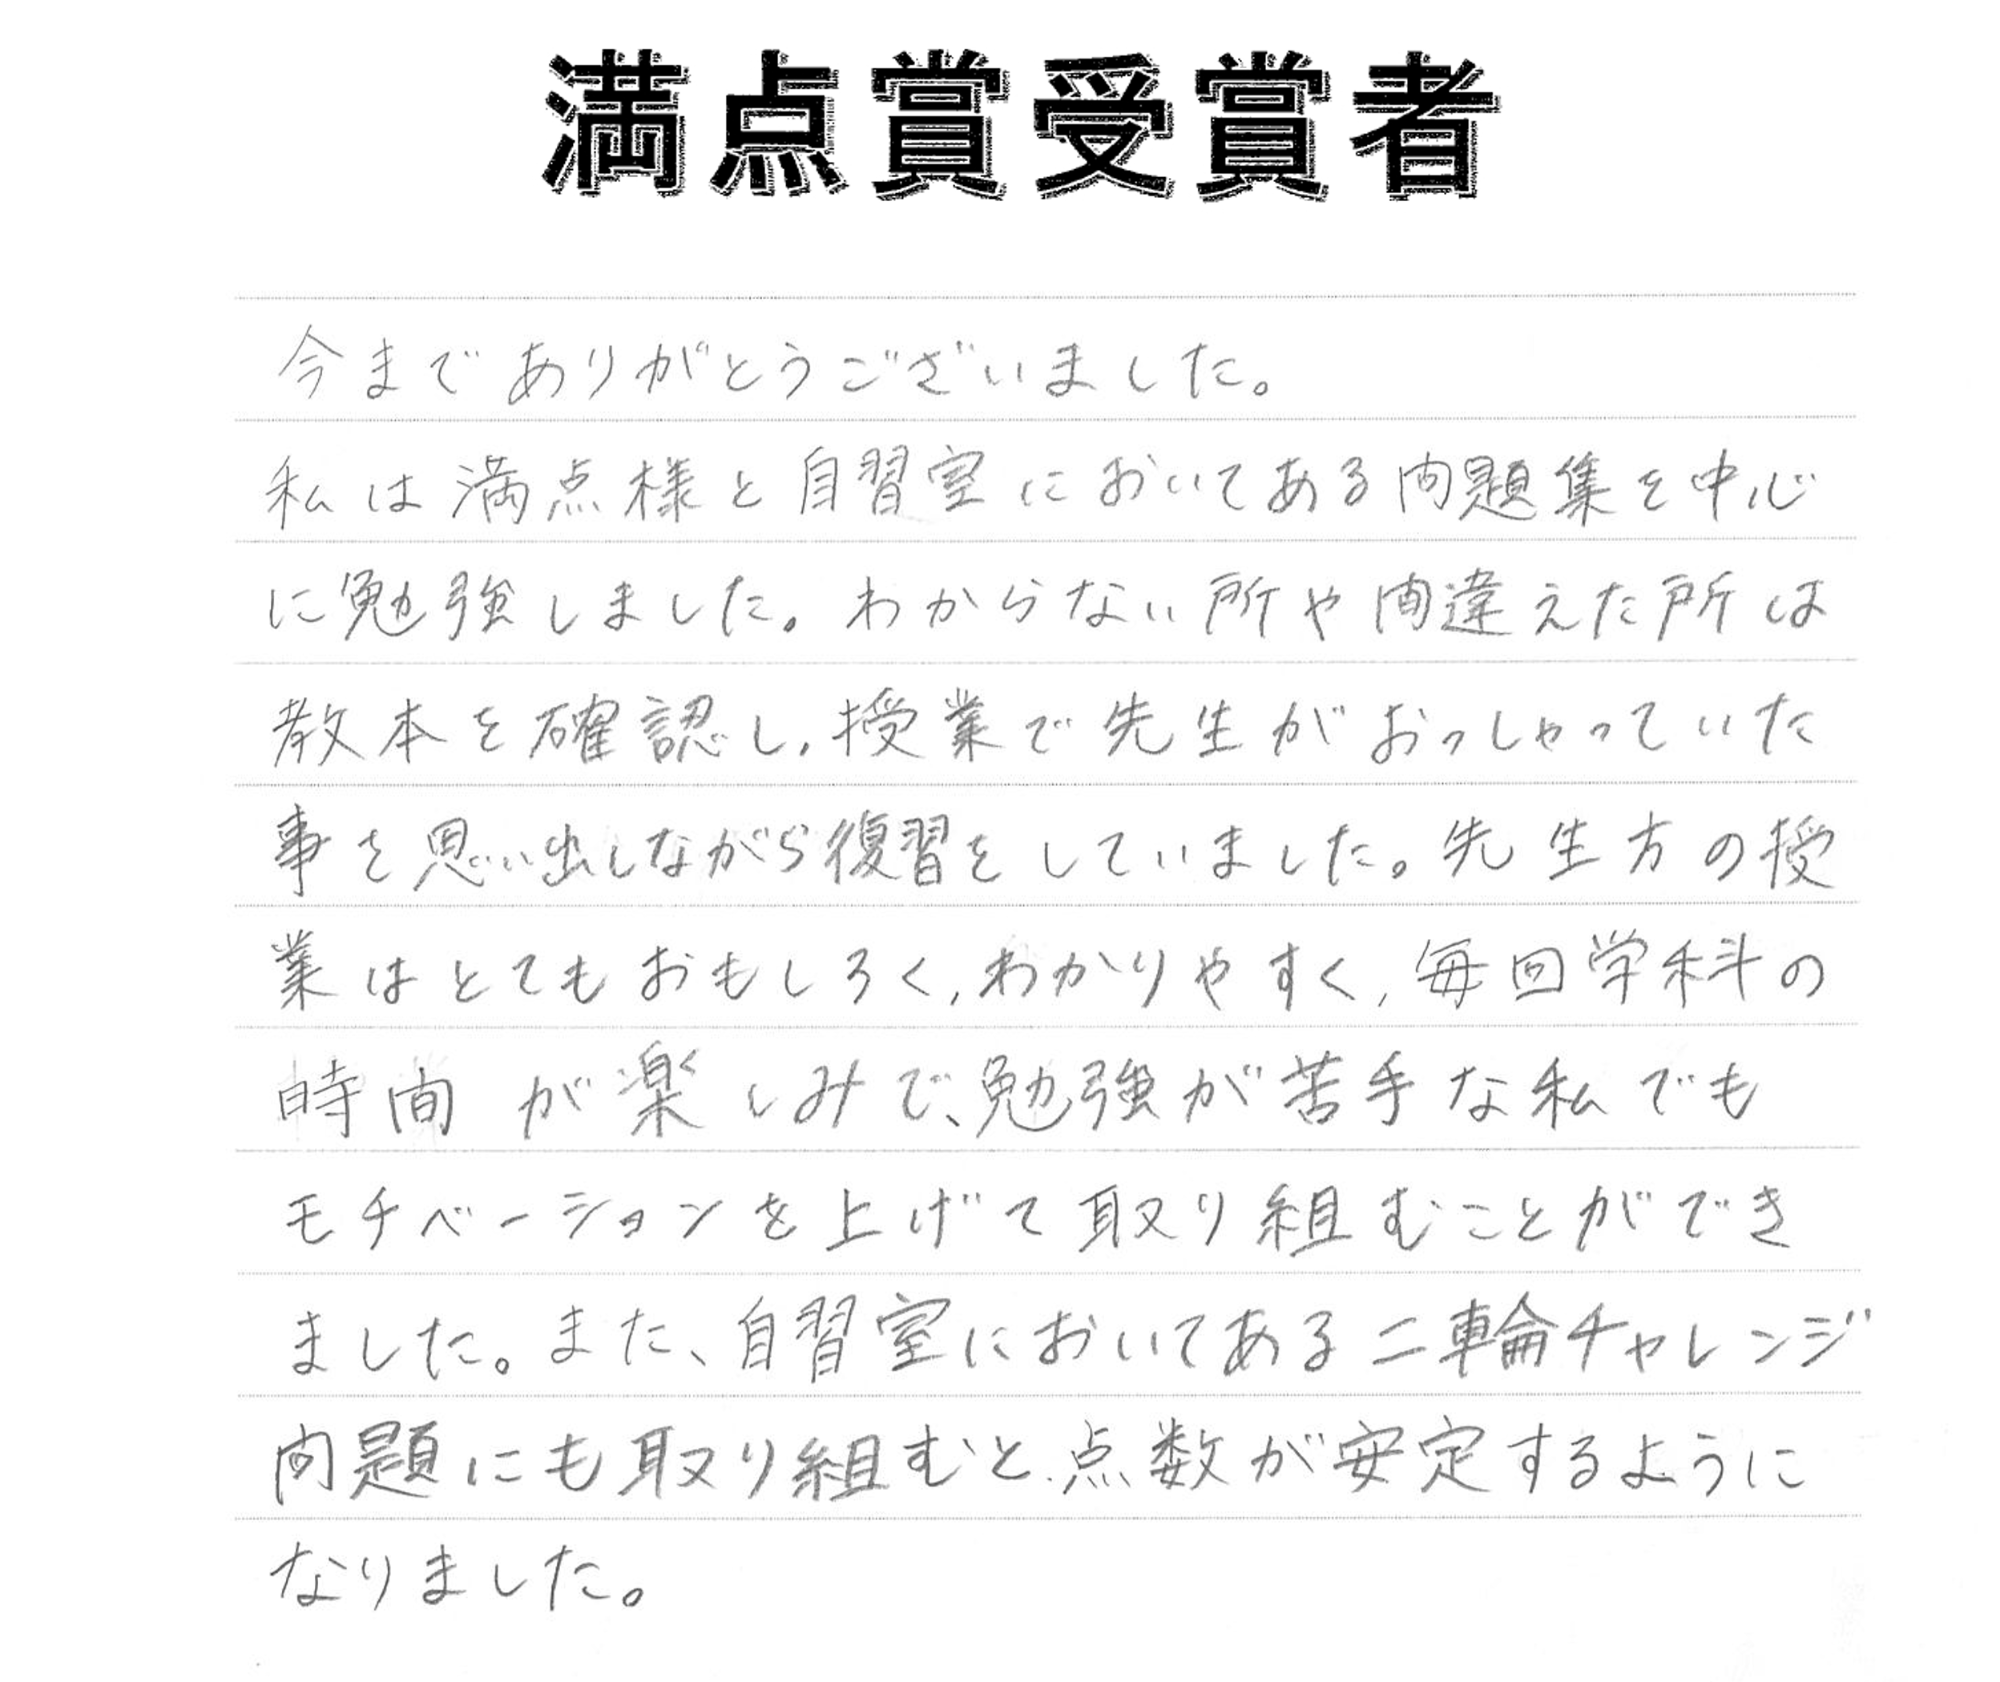 満点賞受賞者
今までありがとうございました。
私は満点様と自習室においてある問題集を中心
に勉強しました。わからない所や間違えた所は
教本を確認し,授業で先生がおっしゃっていた
事を思い出しながら復習をしていました。先生方の授
業はとてもおもしろく,わかりやすく,毎回学科の
時間が楽しみで、勉強が苦手な私でも
モチベーションを上げて取り組むことができ
ました。また、自習室においてある二輪チャレンジ
問題にも取り組むと点数が安定するように
なりました。